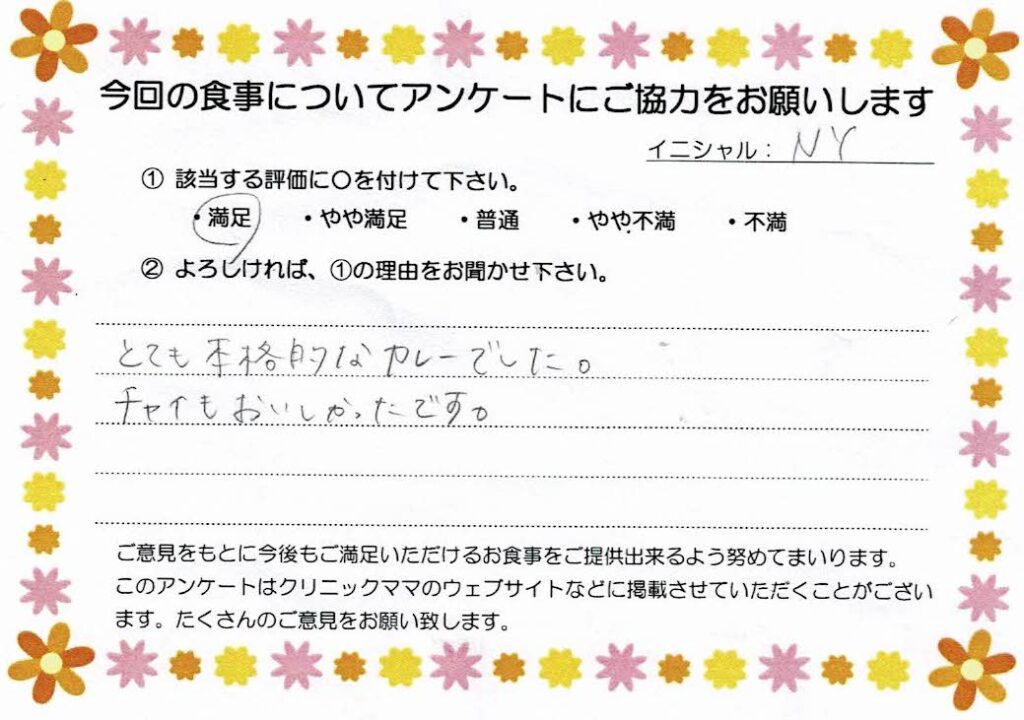 今回の食事についてアンケートにご協力をお願いします
イニシャル： NY
① 該当する評価に○を付けて下さい。
・満足 ・やや満足 ・普通 ・やや不満 ・不満
② よろしければ、①の理由をお聞かせ下さい。
とても本格的なカレーでした。
チャイもおいしかったです。
ご意見をもとに今後もご満足いただけるお食事をご提供出来るよう努めてまいります。
このアンケートはクリニックママのウェブサイトなどに掲載させていただくことがござい
ます。たくさんのご意見をお願い致します。